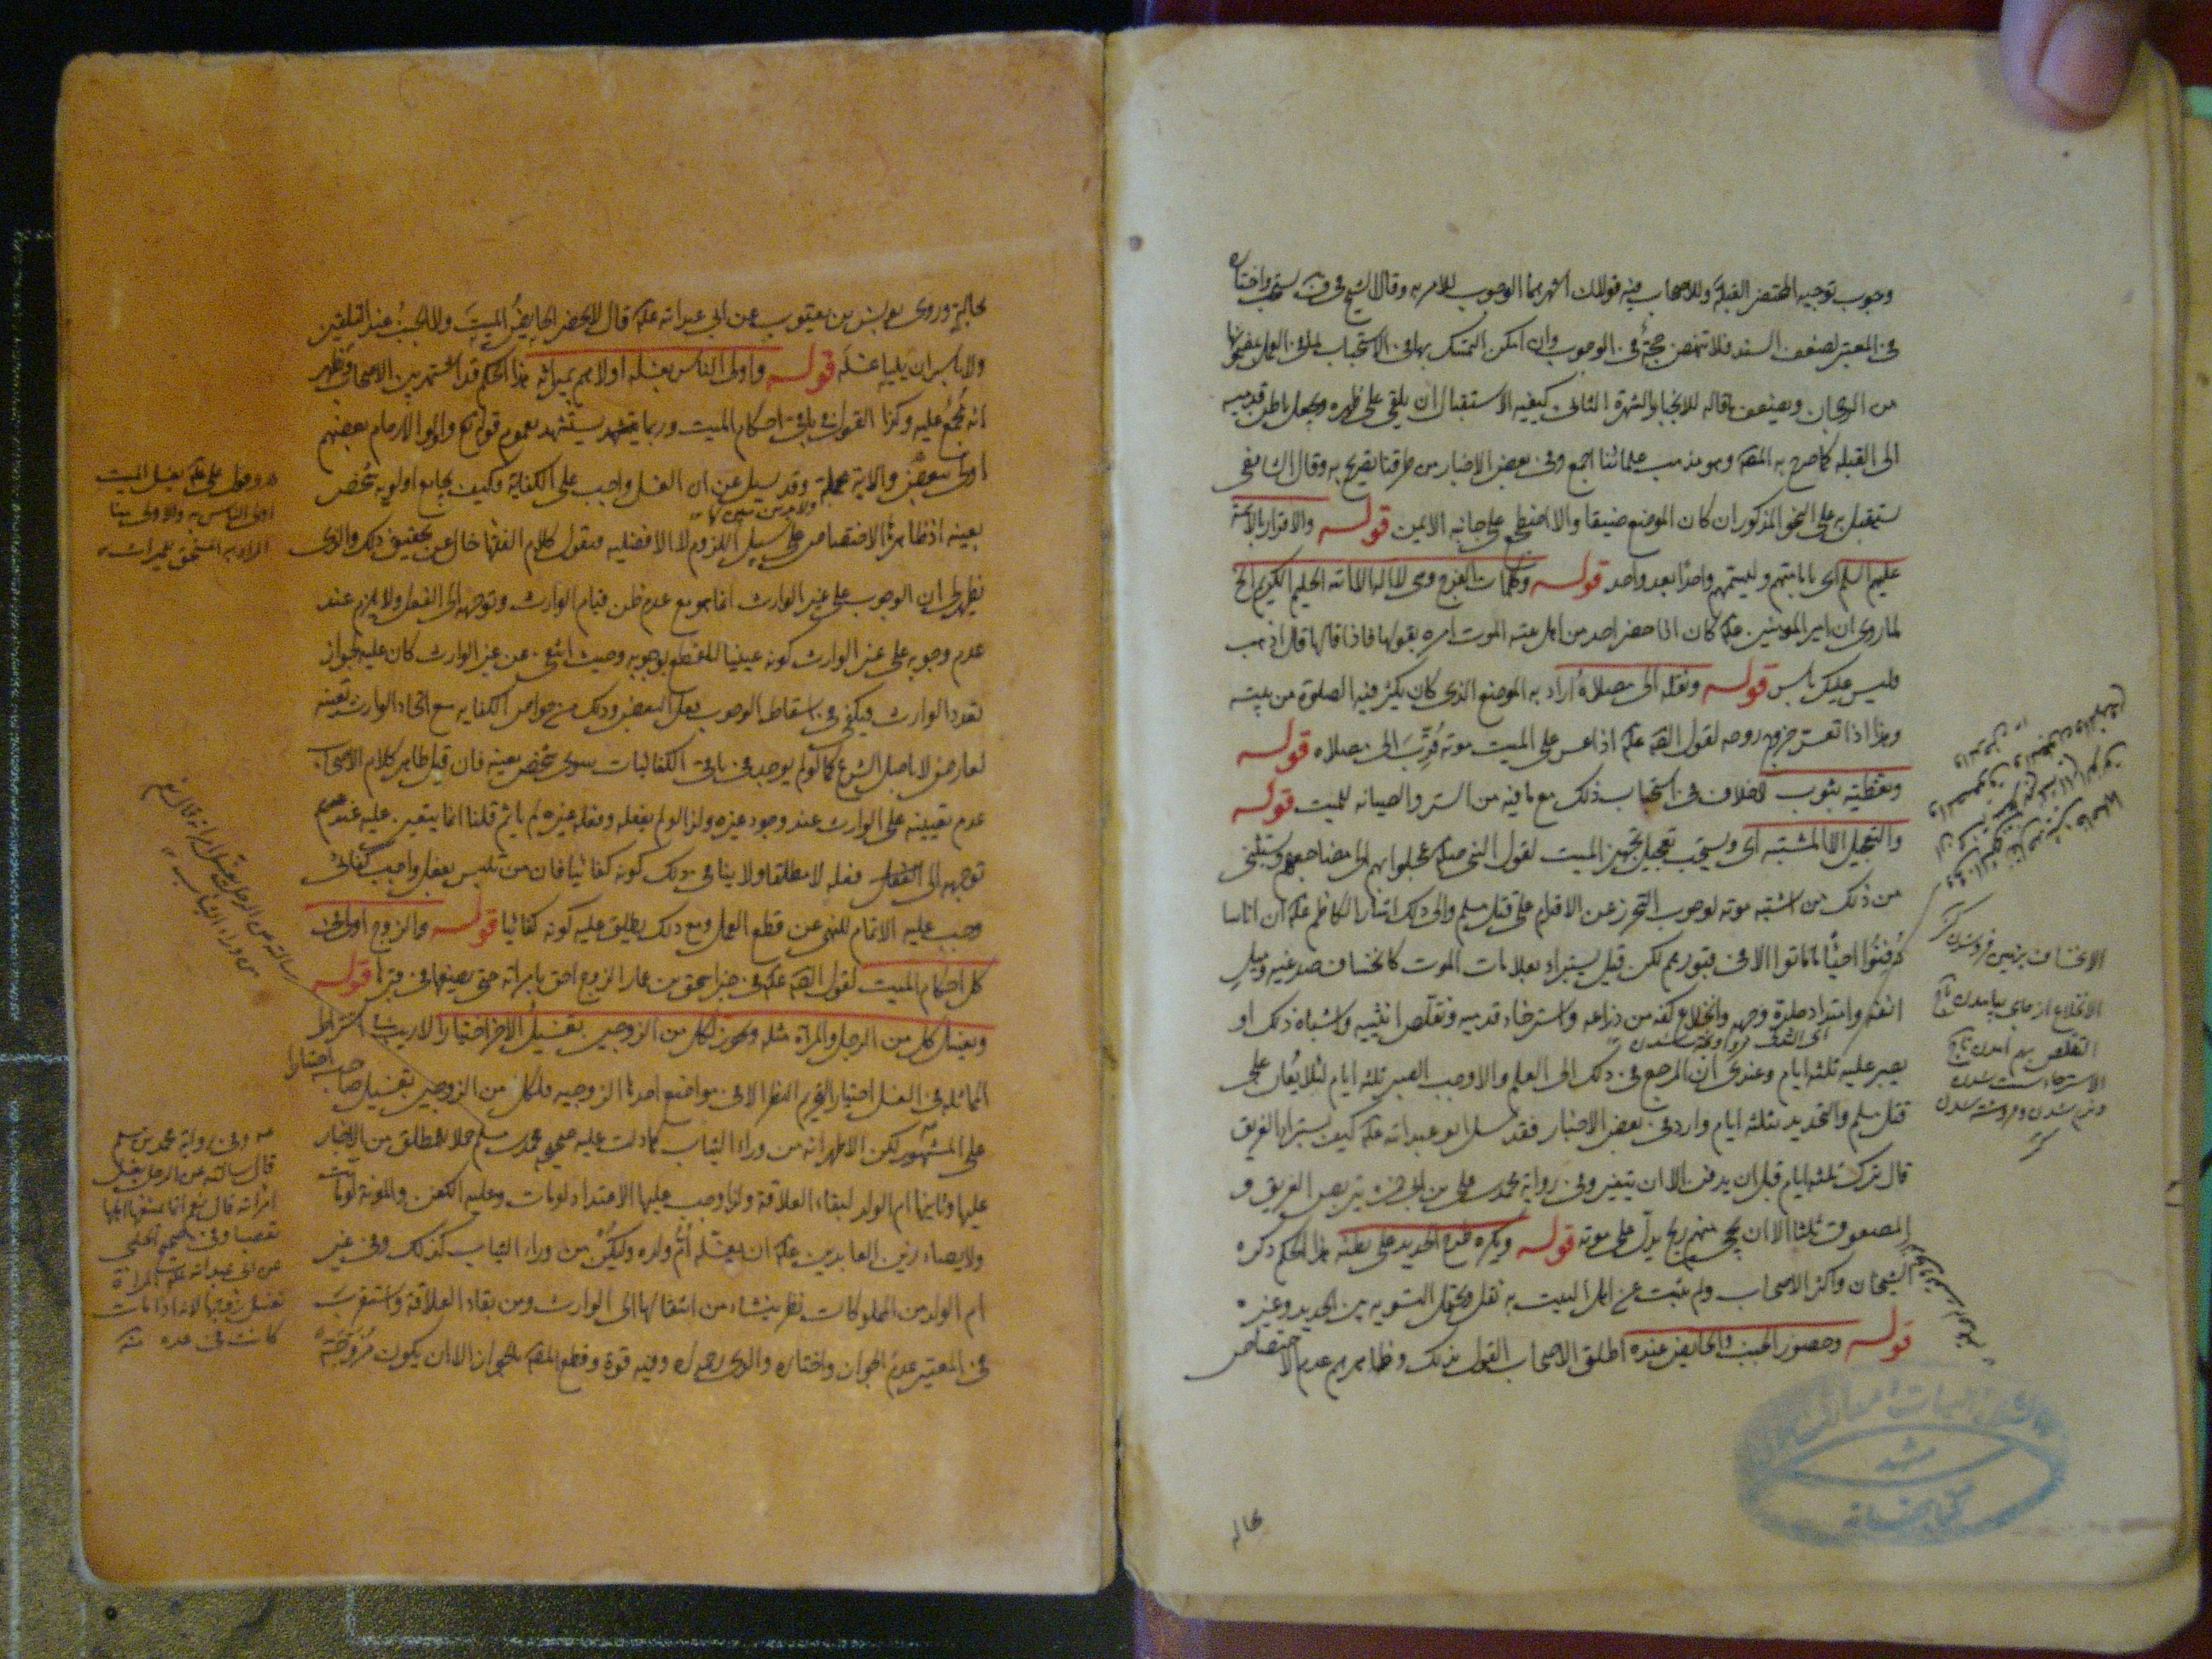 وجوب توجيه المحتضر القبلة وللاصحاب فيه قولان اشهرهما الوجوب للامر به وقال الشيخ في يستحب واختاره
في المعتبر لضعف السند فلا تنهض حجة في الوجوب وان امكن التمسك بها في الاستحباب
من الرجحان ويضعف ما قاله للانجبار بالشهرة الثاني كيفيه الاستقبال ان يلقى على ظهره ويجعل باطن قدميه
الى القبله كما صرح به المصـ وهو مذهب علمائنا اجمع وفي بعض الاخبار من طرقنا تصريح به وقال الشافعي
يستقبل به على النحو المذكور ان كان الموضع ضيقا والا اضطجع على جانبه الايمن قوله والاقرار بالائمة
عليهم السلم اى بامامتهم وليسمهم واحدا بعد واحد قوله وكلمات الفرج وهى لا اله الا الله الحليم الكريم الخ
لما روى ان امير المومنين علـ كان اذا حضر احد من اهل بيته الموت امره بقولها فاذا قالها قال اذهب
فليس عليك باس قوله ونقله الى مصلاه اراد به الموضع الذى كان يكثر فيه الصلوة من بيته
وهذا اذا تعسر خروج روحه لقول الصـ علـ اذا عسر على الميت موته قُرِّبَ الى مصلاه قوله
وتغطيته بثوب لا خلاف فى استحباب ذلك مع ما فيه من الستر والصيانه للميت قوله
والتعجيل الا المشتبه اى ويستحب تعجيل تجهيز الميت لقول النبى صلـ عجلوا بهم الى مضاجعهم ويستثنى
من ذلك من اشتبه موته لوجوب التحرز عن الاقدام على قتل مسلم والى ذلك اشار الكاظم علـ ان اناسا
دُفِنُوا احياًا ما ماتوا الا فى قبورهم لكن قيل يستبراء بعلامات الموت كانخساف صدغيه وميل
انفه وامتداد جلدة وجهه وانخلاع كفه من ذراعه واسترخاء قدميه وتقلّص انثييه واشباه ذلك او
يصبر عليه ثلثه ايام وعندى ان المرجع فى ذلك الى العلم والا وجب الصبر ثلثه ايام لئلا يُعان على
قتل مسلم والتحديد بثلثه ايام وارد فى بعض الاخبار فقد سئل ابو عبدالله علـ كيف يستبراء الغريق
قال يترك ثلثه ايام قبل ان يدفن الا ان يتغير وفى رواية محمد بن على بن ابى حمزه يتربص الغريق و
المصعوق ثلثا الا ان يجىء منهم ريح يدلّ على موته قوله ويكره طرح الحديد على بطنه هذا الحكم ذكره
الشيخان واكثر الاصحاب ولم يثبت عن اهل البيت به نقل ويحتمل التسويه بين الحديد وغيره
قوله وحضور الجنب والحايض عنده اطلق الاصحاب القول بذلك وظاهرهم عدم الاختصاص
بحاله
الانخساف بزمين فروشدن كنز
الانخلاع از جاى بيامدن تاج
التقلص بهم امدن تاج
الاسترخاء سست شدن
ونرم شدن وفروهشته شدن
كنز
كتابخانه
بحالهٍ وروى يونس بن يعقوب عن ابى عبدالله علـ قال لا يحضر الحايضُ الميتَ ولا الجنبُ عند التلقين
ولا باس ان يليا غسلَه قوله واولى الناس بغسله اولاهم بميراثه هذا الحكم قد اشتهر بين الاصحاب فظهر
انه مُجمَع عليه وكذا القول فى باقى احكام الميت وربما يستشهد بعموم قوله تعـ واولوا الارحام بعضهم
اولى ببعض والاية مجملة وقد يسئل عن ان الغسل واجب على الكفاية فكيف يجامع اولوية شخص
بعينه اذ ظاهرها الاختصاص على سبيل اللزوم لا الافضليه فنقول كلام الفقها خال عن تحقيق ذلك والذى
يظهر لى ان الوجوب على غير الوارث انما هو مع عدم ظن قيام الوارث وتوجهه الى الفعل ولا يلزم عند
عدم وجوبه على غير الوارث كونه عينيا للقطع بوجوبه وحيث انتفى عن غير الوارث كان عليه لجواز
تعدد الوارث فيكفى فى اسقاط الوجوب فعل البعض وذلك من خواص الكفايه مع اتحاد الوارث تعينه
لعارض لا باصل الشرع كما لو لم يوجد فى باقى الكفائيات سوى شخص بعينه فان قيل ظاهر كلام الاصحاب
عدم تعيينه على الوارث عند وجود غيره ولذا لو لم يفعله وفعله غيره لم ياثم قلنا انما يتعين عليه عند عدم
توجهه الى فعله لا مطلقا ولا ينافى ذلك كونه كفائيا فان من تلبس بفعل واجب كفائى
وجب عليه الاتمام للنهى عن قطع العمل ومع ذلك يطلق عليه كونه كفائيا قوله والزوج اولى فى
كل احكام الميت لقول الصـ علـ فى خبر اسحق بن عمار الزوج احق بامراته حتى يضعها فى قبرها قوله
ويغسل كل من الرجل والمرأة مثله ويجوز لكل من الزوجين تغسيل الاخر اختيارا لا ريب فى اشتراط
المماثله فى الغسل اختيارا لتحريم النظر الا فى مواضع احدها الزوجيه فلكل من الزوجين تغسيل صاحبه اختيارا
على المشهور لكن الاظهر انه من وراء الثياب كما دلت عليه صحيحه محمد بن مسلم حملا للمطلق من الاخبار
عليها وثانيها ام الولد لبقاء العلاقة ولذا وجب عليها الاعتداد لو مات وعليه الكفن والمؤنة لو ماتت
ولايصاء زين العابدين علـ ان يغسّله اُمُّ ولده وليكُنْ من وراء الثياب كذلك وفى غير
ام الولد من المملوكات نظر ينشاء من انتقالها الى الوارث ومن بقاء العلاقة واستقرب
فى المعتبر عدم الجواز واختاره والدى وفيه قوة وقطع المصـ بالجواز الا ان يكون مُزَوَّجَةً
وقول على علـ يغسل الميت
اولى الناس به والاولى هنا
المراد به المستحق للميراث
سالته عن الرجل يغسل امراته قال نعم
من وراء الثياب
وفى رواية محمد بن مسلم
قال سالته عن الرجل يغسل
امراته قال نعم انما يمنعها اهلها
تعصبا وفى صحيح الحلبى
عن ابى عبدالله علـ المراة
تغسل زوجها لانه اذا مات
كانت فى عدة منه